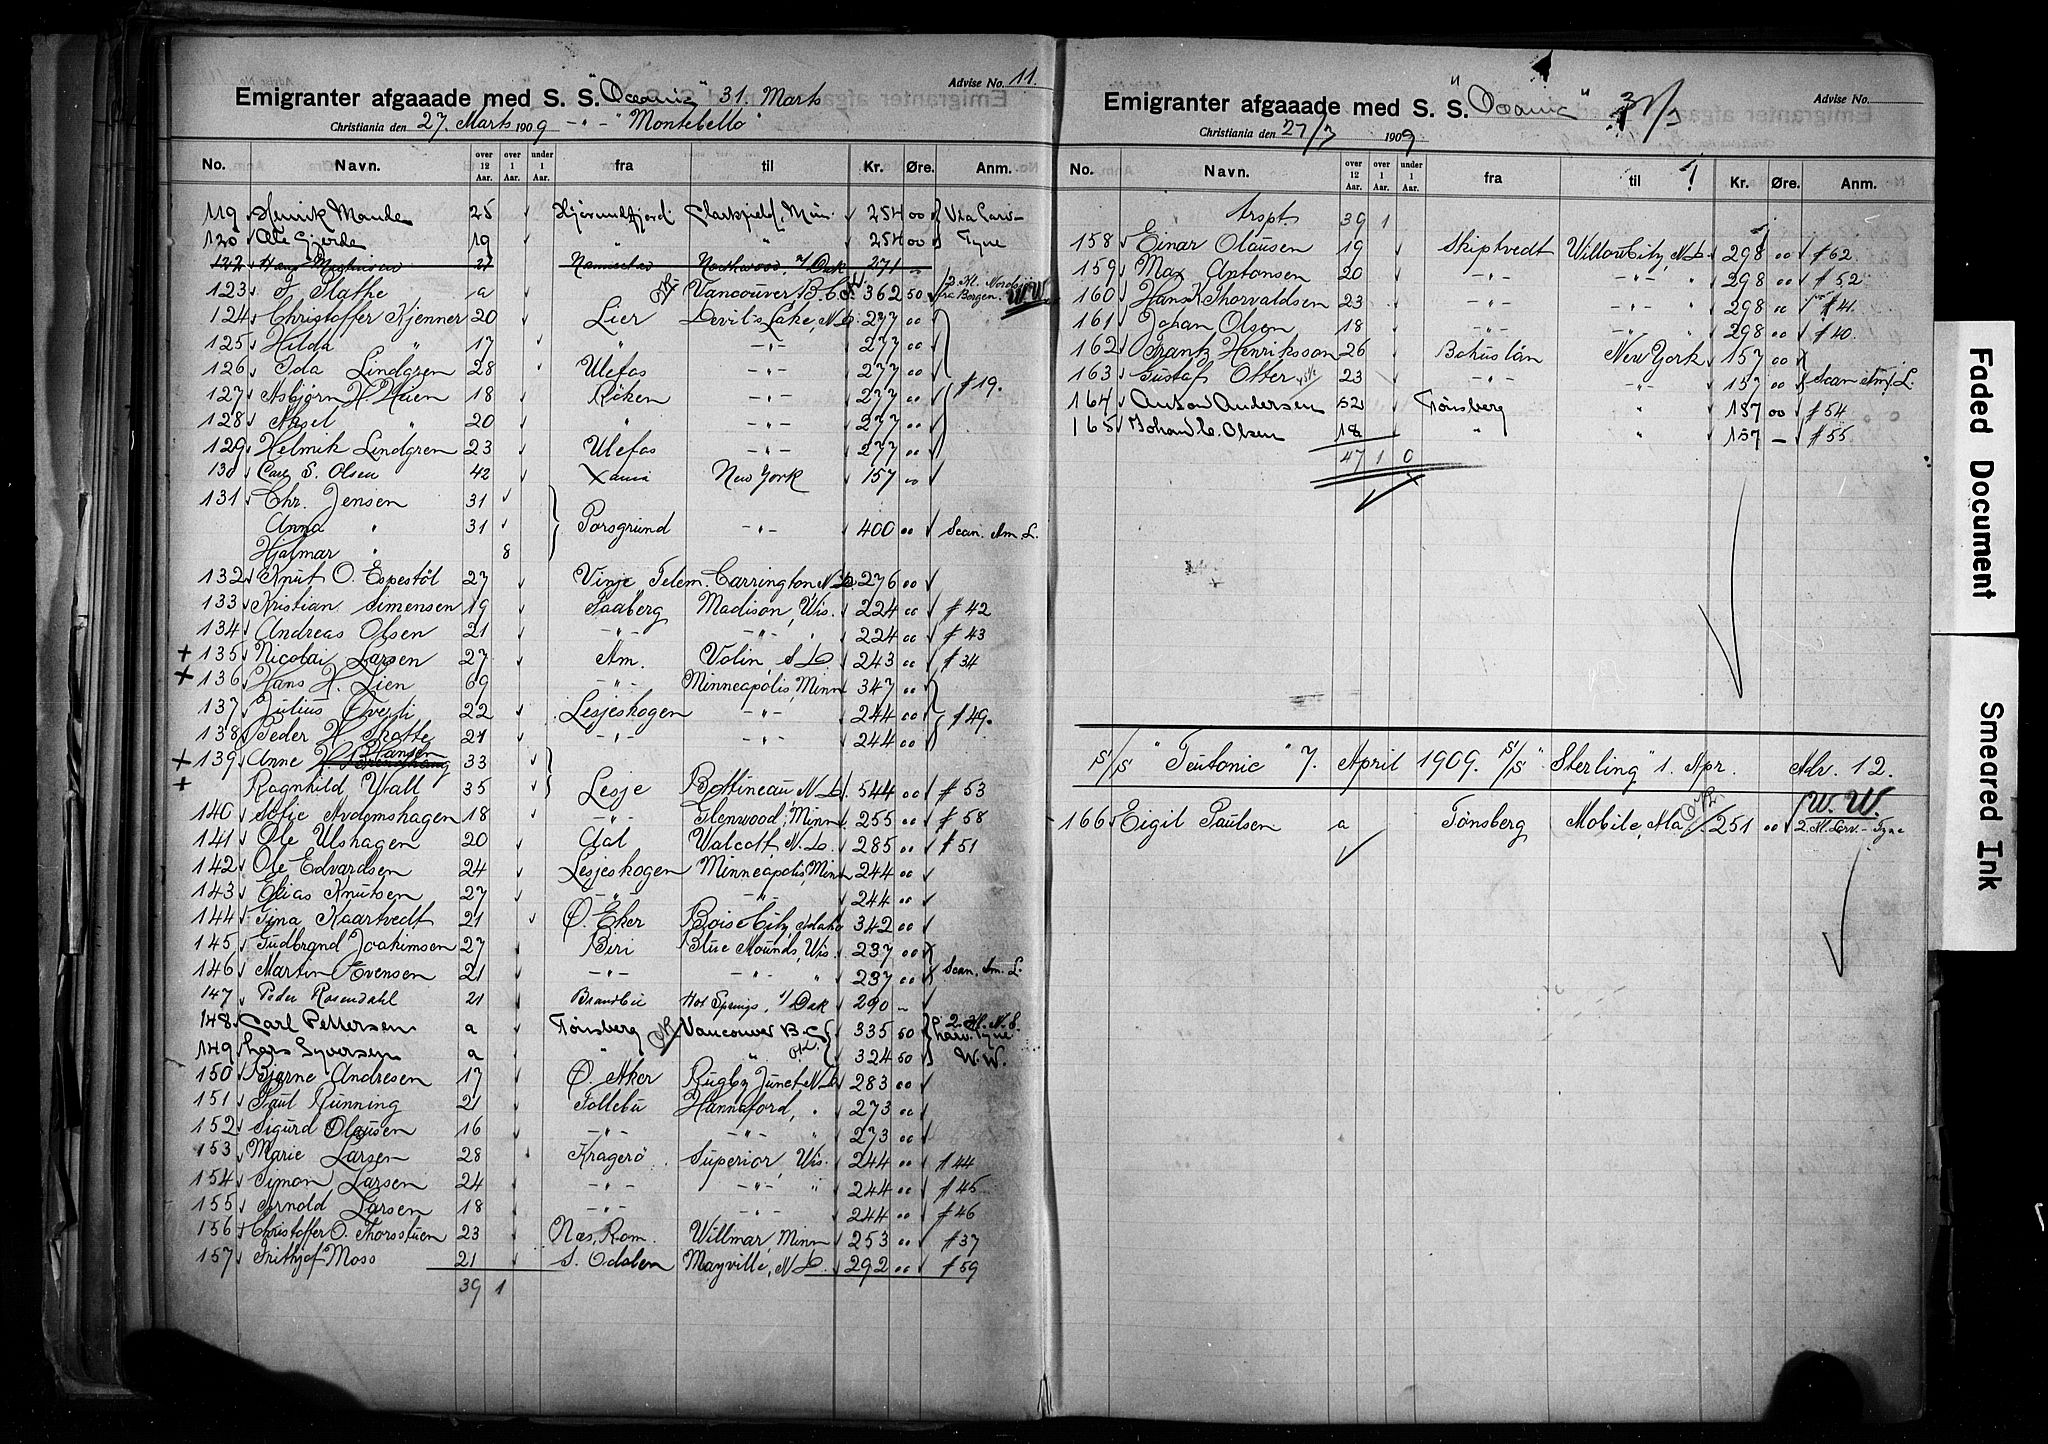 Advise No. 11.
Emigranter afgaaade med S. S. "Oceanic" 31. Marts
Christiania den 27. Marts 1909 -"- "Montebello"
No. Navn. over 12 Aar. over 1 Aar. under 1 Aar. fra til Kr. Øre. Anm.
119 Henrik Maude 25 Hjørundfjord Clarkfield, Min. 254 00 Via Larv-
120 Ole Gjerde 19 " 254 00 Tyne
122 Hans 21 Northwood, N/Dak 271 -
123 J. Slathe a Vancouver B.C. 362 50 2 Kl. Nordsj. fra Bergen. W W
124 Christoffer Kjenner 20 Lier Devil's Lake, N.D. 277 00
125 Hilda " 17 " -"- 277 00
126 Ida Lindgren 28 Ulefos -"- 277 00
127 Asbjørn H. Huen 18 Röken -"- 277 00 # 19.
128 Aksel " 20 " -"- 277 00
129 Helmik Lindgren 23 Ulefos -"- 277 00
130 Carl S. Olsen 42 Xania New York 157 00
131 Chr. Jensen 31
Anna " 31 Porsgrund -"- 400 00 Scan. Am. L.
Hjalmar " 8
132 Knut O. Espestöl 27 Vinje Telem. Carrington N.D. 276 00
133 Kristian Simensen 19 Faaberg Madison, Wis. 224 00 # 42
134 Andreas Olsen 21 -"- -"- 224 00 # 43
+ 135 Nicolai Larsen 27 Am. Volin, S.D. 243 00 # 34
+ 136 Hans H. Lien 69 -"- Minneapolis, Minn 347 00
137 Julius Tverli 22 Lesjeskogen -"- 244 00 # 49.
138 Peder H. Skotte 21 -"- -"- 244 00
+ 139 Anne Hansen 33
+ Ragnhild Wall 35 Lesje Bottineau N.D. 544 00 # 53
140 Sofie Avdemshagen 18 -"- Glenwood, Minn. 255 00 # 58
141 Ole Ulshagen 20 Aal Walcott, N.D. 285 00 # 51
142 Ole Edvardsen 24 Lesjeskogen Minneapolis, Minn 244 00
143 Elias Knutsen 27 -"- -"- 244 00
144 Gina Kaartvedt 21 Ö. Eker Boise City, Idaho 342 00
145 Gudbrand Joakimsen 27 Biri Blue Mounds, Wis. 237 00
146 Martin Evensen 21 -"- -"- " 237 00 Scan. Am. L.
147 Peder Rosendahl 21 Brandbu Hot Springs, S/Dak 290 -
148 Carl Pettersen a Tønsberg Vancouver B.C. 335 50 2. Kl. N.S. Larv. Tyne
149 Lars Syversen a " " 324 50 W.W.
150 Bjarne Andresen 17 Ö. Aker Rugby Junct N.D. 283 00
151 Paul Running 21 Follebu Hannaford, " 273 00
152 Sigurd Olausen 16 -"- -"- " 273 00
153 Marie Larsen 28 Kragerö Superior, Wis. 244 00 # 44
154 Simon Larsen 24 -"- -"- " 244 00 # 45
155 Arnold Larsen 18 -"- -"- 244 00 # 46
156 Christoffer O. Thorsstuen 23 Næs, Rom. Willmar, Minn 253 00 # 37
157 Frithjof Moss 21 S. Odalen Mayville, N.D. 292 00 # 59
39 1
Advise No.
Emigranter afgaaade med S. S. "Oceanic" 31/3
Christiania den 27/3 1909
No. Navn. over 12 Aar. over 1 Aar. under 1 Aar. fra til Kr. Øre. Anm.
Trspt. 39 1
158 Einar Olausen 19 Skiptvedt Willow City, N.D. 298 00 # 62
159 Max Antonsen 20 -"- -"- " 298 00 # 52
160 Hans K Thorvaldsen 23 -"- -"- " 298 00 # 41.
161 Johan Olsen 18 -"- -"- " 298 00 # 40.
162 Frantz Henriksson 26 Bohuslän New York 157 00
163 Gustaf Otter 23 -"- -"- 157 00 Scan Am. L.
164 Anton Andersen 52 Tønsberg " 157 00 # 54
165 Johan C. Olsen 18 " " 157 - # 55
47 1 0
S/S "Teutonic" 7. April 1909. S/S "Sterling" 1. Apr. Av. 12.
166 Eigil Paulsen a Tønsberg Mobile, Ala. 251 00 W.W. 2. Kl. Larv.-Tyne
Faded Document
Smeared Ink